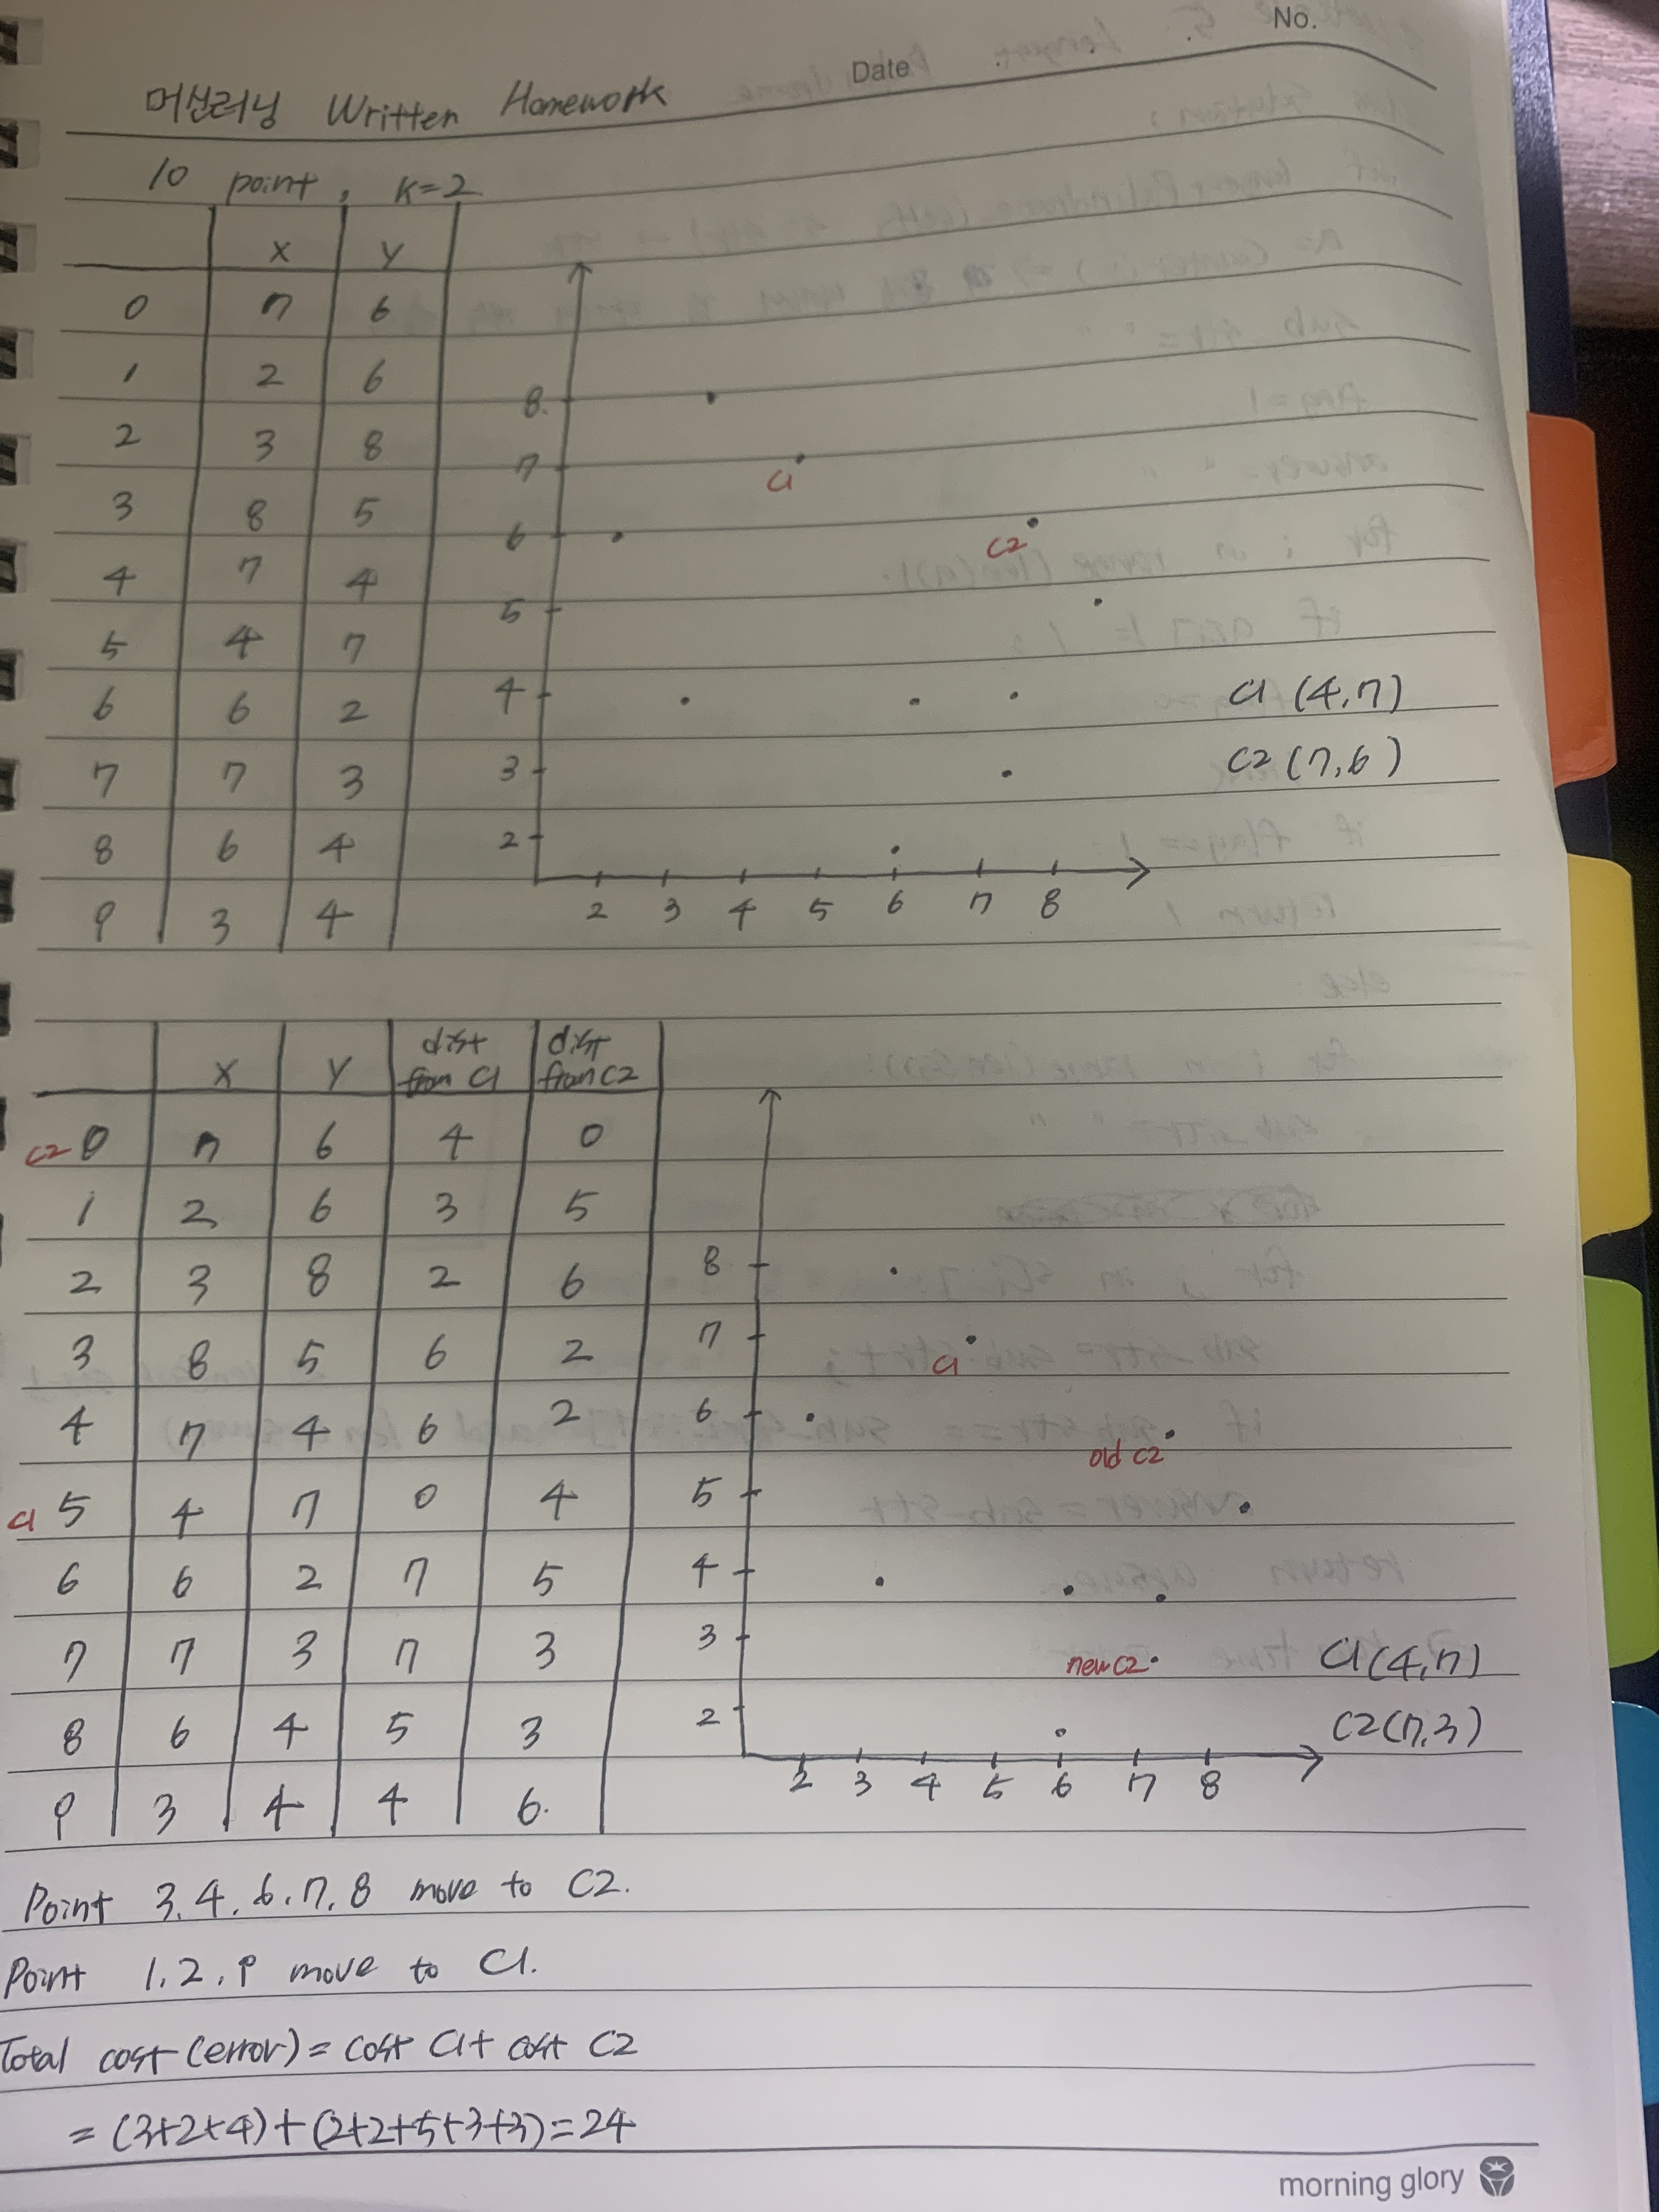 No.
Date
머신러닝 Written Homework
10 point, K=2
x y
0 7 6
1 2 6
2 3 8
3 8 5
4 7 4
5 4 7
6 6 2
7 7 3
8 6 4
9 3 4
8
7
C1
6
C2
5
4
3
2
2 3 4 5 6 7 8
C1 (4,7)
C2 (7,6)
x y dist from C1 dist from C2
C2 0 7 6 4 0
1 2 6 3 5
2 3 8 2 6
3 8 5 6 2
4 7 4 6 2
C1 5 4 7 0 4
6 6 2 7 5
7 7 3 7 3
8 6 4 5 3
9 3 4 4 6.
8
7
C1
6
old C2
5
4
3
new C2
2
2 3 4 5 6 7 8
C1 (4,7)
C2 (7,3)
Point 3, 4, 6, 7, 8 move to C2.
Point 1, 2, 9 move to C1.
Total cost (error) = cost C1 + cost C2
= (3+2+4)+(2+2+5+3+3)=24
morning glory